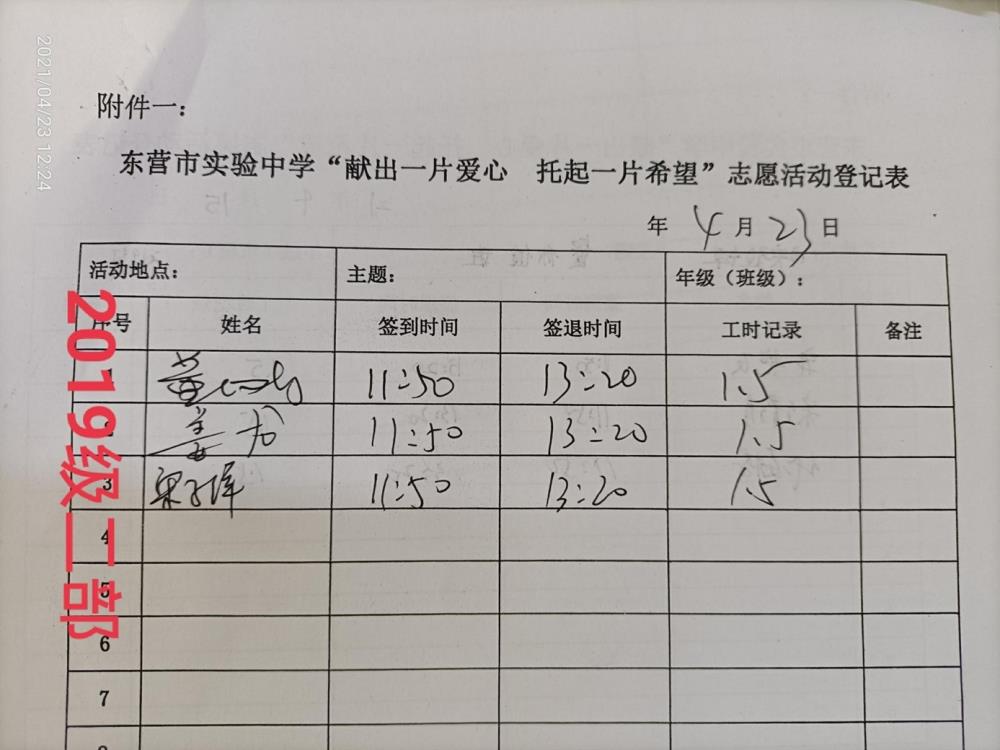 2021/04/23 12:24
附件一：
东营市实验中学“献出一片爱心 托起一片希望”志愿活动登记表
年 4 月 23 日
活动地点： 主题： 年级（班级）：
序号 姓名 签到时间 签退时间 工时记录 备注
1 11:50 13:20 1.5
2 姜 11:50 13:20 1.5
3 梁子 11:50 13:20 1.5
4
5
6
7
2019级二部